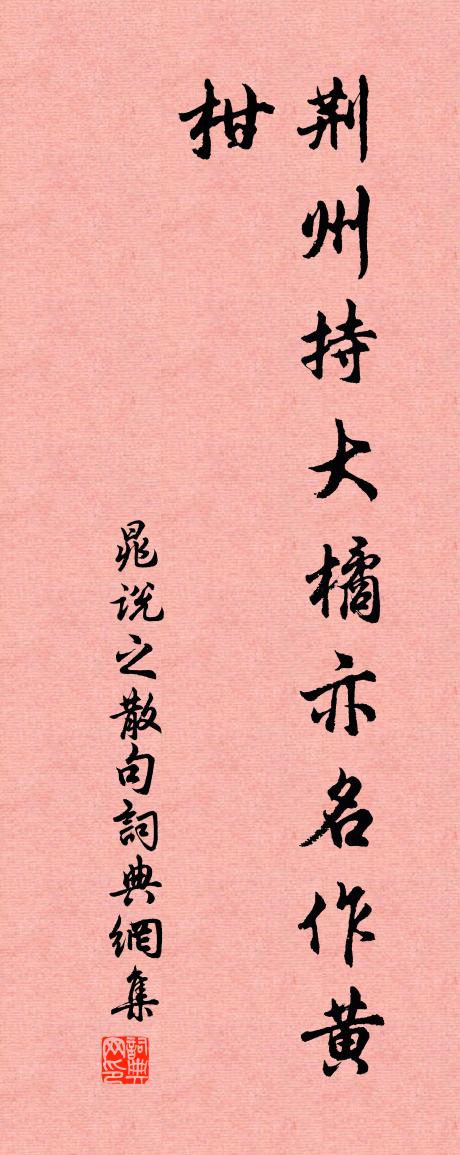 荆州持大橘亦名作黄
柑
晁说之散句詞典網集
詞典网印